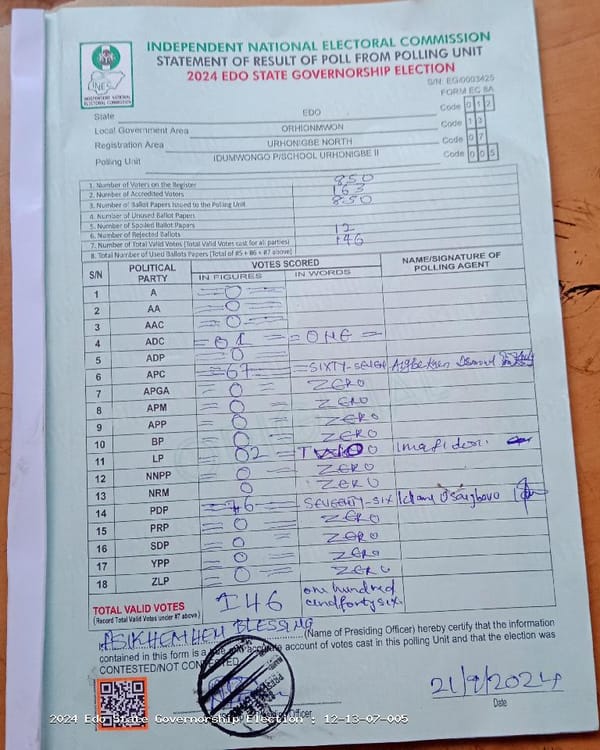 INDEPENDENT NATIONAL ELECTORAL COMMISSION
STATEMENT OF RESULT OF POLL FROM POLLING UNIT
2024 EDO STATE GOVERNORSHIP ELECTION
S/N: EG/0003425
FORM EC 8A
INEC
INDEPENDENT NATIONAL ELECTORAL COMMISSION
State EDO Code 0 1 2
Local Government Area ORHIONMWON Code 1 3
Registration Area URHONIGBE NORTH Code 0 7
Polling Unit IDUMWONGO P/SCHOOL URHONIGBE II Code 0 0 5
1. Number of Voters on the Register 850
2. Number of Accredited Voters 163
3. Number of Ballot Papers Issued to the Polling Unit 850
4. Number of Unused Ballot Papers
5. Number of Spoiled Ballot Papers
6. Number of Rejected Ballots 12
7. Number of Total Valid Votes (Total Valid Votes cast for all parties) 146
8. Total Number of Used Ballots Papers (Total of #5 + #6 + #7 above)
S/N POLITICAL PARTY VOTES SCORED NAME/SIGNATURE OF POLLING AGENT
IN FIGURES IN WORDS
1 A 0
2 AA 0
3 AAC 0
4 ADC 01 ONE
5 ADP 0
6 APC 67 SIXTY-SEVEN
7 APGA 0 ZERO
8 APM 0 ZERO
9 APP 0 ZERO
10 BP 0 ZERO
11 LP 02 TWO Imafidon
12 NNPP 0 ZERO
13 NRM 0 ZERO
14 PDP 76 SEVENTY-SIX
15 PRP 0 ZERO
16 SDP 0 ZERO
17 YPP 0 ZERO
18 ZLP 0 ZERO
TOTAL VALID VOTES 146 one hundred and forty six
(Record Total Valid Votes under #7 above)
ASIKHEMHEN BLESSING
(Name of Presiding Officer) hereby certify that the information
contained in this form is a true and accurate account of votes cast in this polling Unit and that the election was
CONTESTED/NOT CONTESTED.
21/9/2024
Date
2024 Edo State Governorship Election : 12-13-07-005